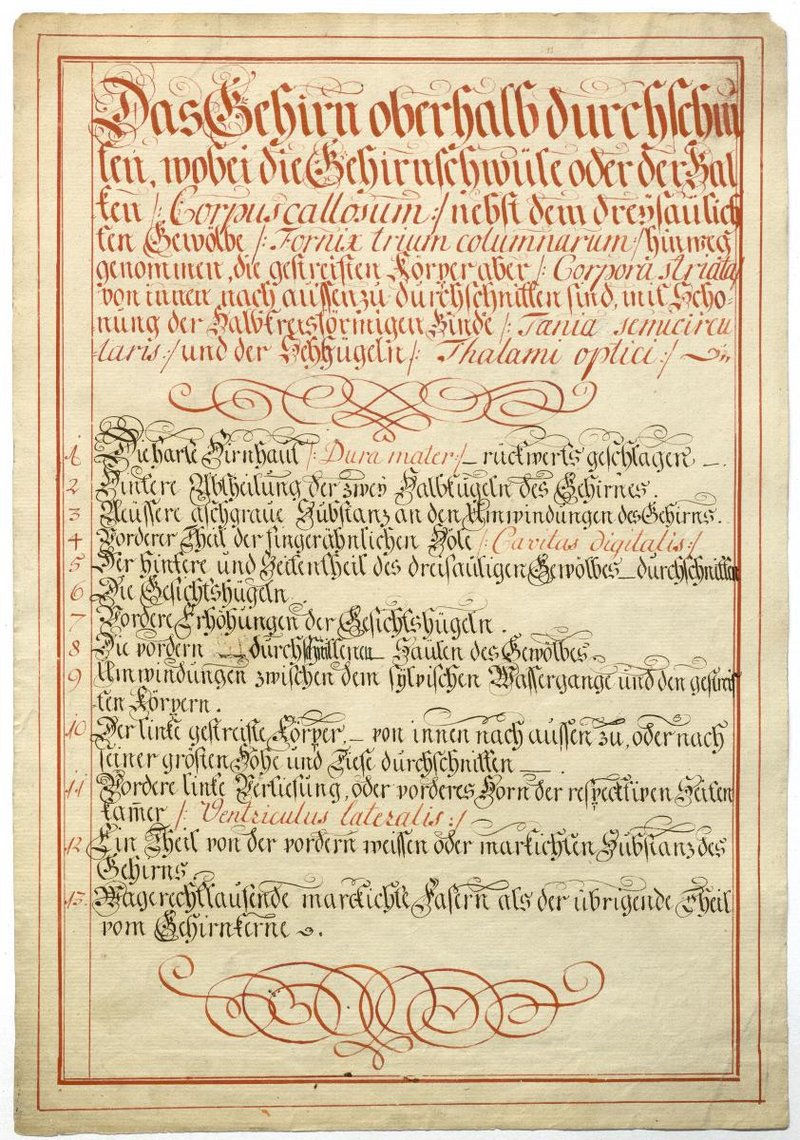 Das Gehirn oberhalb durchschnit
ten, wobei die Gehirnschwüle oder der Bal
ken /: Corpus callosum :/ nebst dem dreysäulich
ten Gewölbe /: Fornix trium columnarum :/ hinweg
genommen, die gestreiften Körper aber /: Corpora striata :/
von innen nach aussen zu durchschnitten sind, mit Scho=
nung der halbkreisförmigen Binde /: Tænia semicircu
laris :/ und der Sehhügeln /: Thalami optici :/
1 Die harte Hirnhaut /: Dura mater :/ – rückwerts geschlagen –.
2 Hintere Abtheilung der zwey Halbkugeln des Gehirnes.
3 Aeussere aschgraue Substanz an den Umwindungen des Gehirns.
4 Vorderer Theil der fingerähnlichen Höle /: Cavitas digitalis :/
5 Der hintere und Seitentheil des dreisäuligen Gewölbes – durchschnitten
6 Die Gesichtshügeln.
7 Vordere Erhöhungen der Gesichtshügeln.
8 Die vordern – durchschnittenen – Säulen des Gewölbes.
9 Umwindungen zwischen dem sylvischen Wassergange und den gestreif
ten Körpern.
10 Der linke gestreifte Körper, – von innen nach aussen zu, oder nach
seiner grösten Höhe und Tiefe durchschnitten –.
11 Vordere linke Vertiefung, oder vorderes Horn der respecktiven Seiten
kam̅er /: Ventriculus lateralis :/
12 Ein Theil von der vordern weissen oder markichten Substanz des
Gehirns.
13 Wagerechtlaufende marckichte Fasern als der übrigende Theil
vom Gehirnkerne.